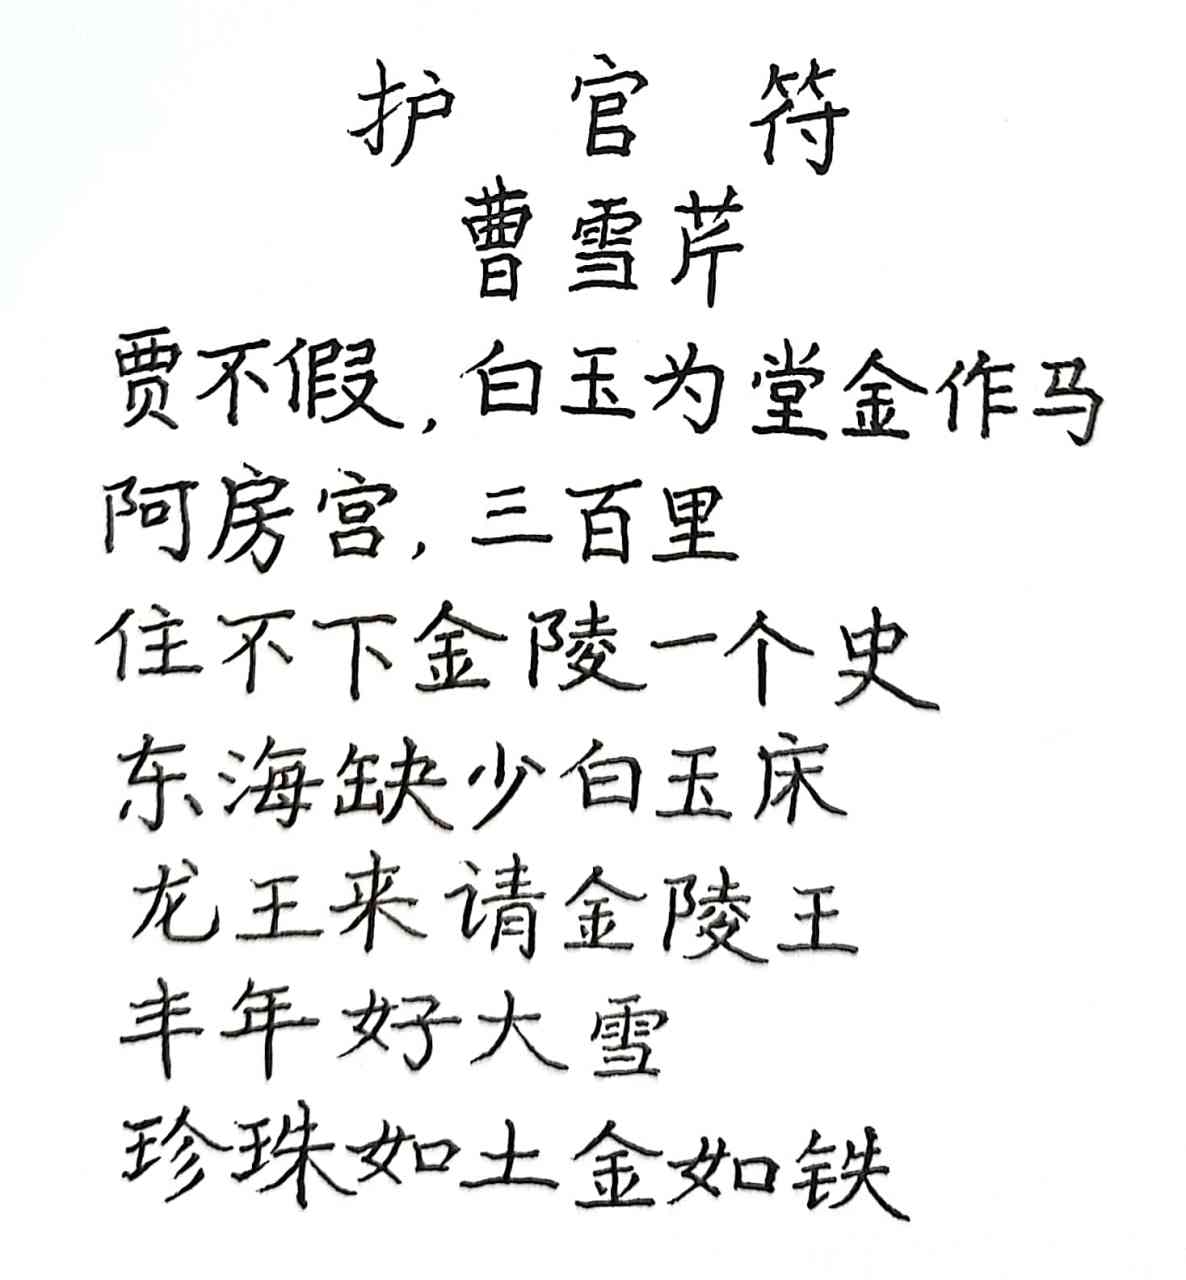 护官符
曹雪芹
贾不假,白玉为堂金作马
阿房宫,三百里
住不下金陵一个史
东海缺少白玉床
龙王来请金陵王
丰年好大雪
珍珠如土金如铁